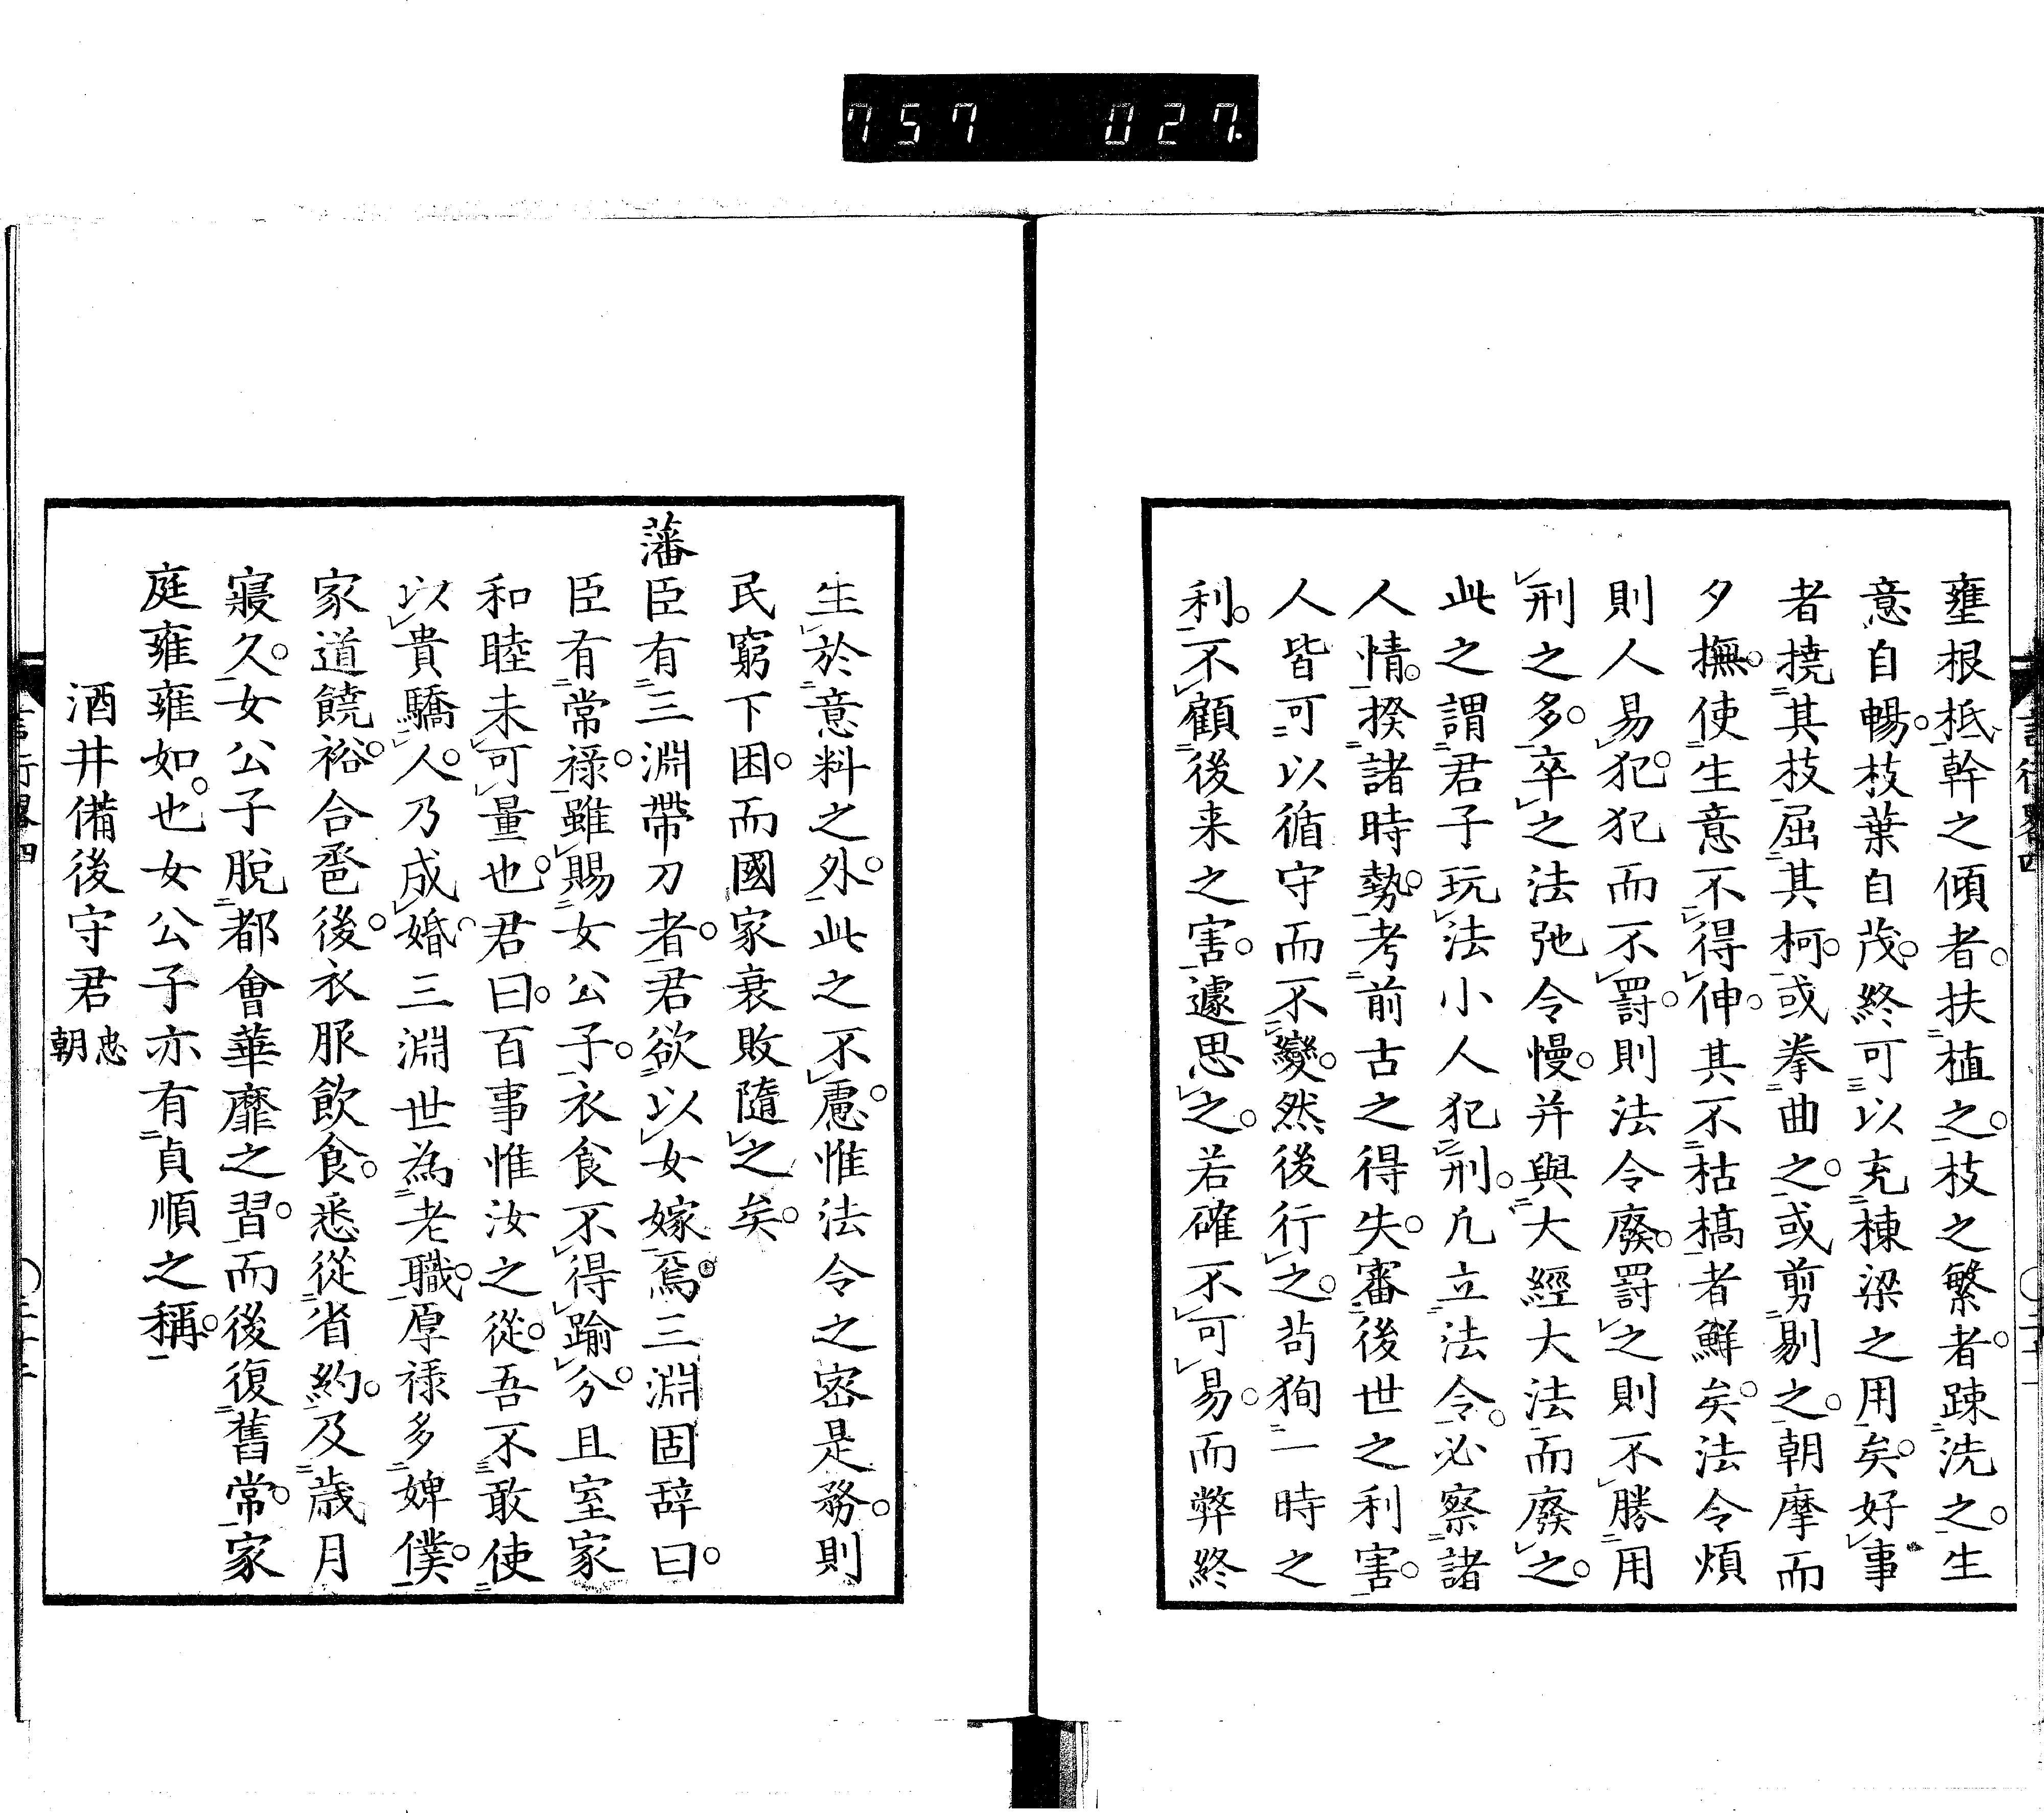 757 027
壅根柢幹之傾者扶植之枝之繁者疎洗之生
意自暢枝葉自茂終可以充棟梁之用矣好事
者撓其枝屈其柯或拳曲之或剪剔之朝摩而
夕撫使生意不得伸其不枯槁者鮮矣法令煩
則人易犯犯而不罰則法令廢罰之則不勝用
刑之多卒之法弛令慢并與大經大法而廢之
此之謂君子玩法小人犯刑凡立法令必察諸
人情揆諸時勢考前古之得失審後世之利害
人皆可以循守而不變然後行之苟狥一時之
利不顧後来之害遽思之若確不可易而弊終
生於意料之外此之不慮惟法令之密是務則
民窮下困而國家衰敗隨之矣
藩臣有三淵帶刀者君欲以女嫁焉三淵固辞曰
臣有常祿雖賜女公子衣食不得踰分且室家
和睦未可量也君曰百事惟汝之從吾不敢使
以貴驕人乃成婚三淵世為老職厚禄多婢僕
家道饒裕合巹後衣服飲食悉從省約及歳月
寢久女公子脫都會華靡之習而後復舊常家
庭雍雍如也女公子亦有貞順之稱
酒井備後守君忠朝
言行畧四